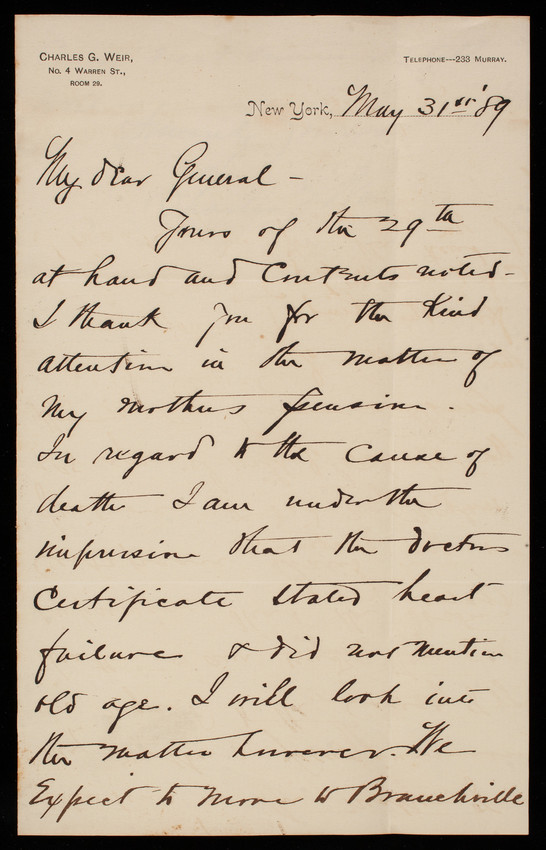 CHARLES G. WEIR,
No. 4 WARREN ST.,
ROOM 29.
TELEPHONE---233 MURRAY.
New York, May 31st '89
My dear General -
Yours of the 29th
at hand and Contents noted -
I thank you for the Kind
attention in the matter of
my mothers pension.
In regard to the cause of
death I am under the
impression that the doctors
Certificate stated heart
failure & did not mention
old age. I will look into
the matter however. We
Expect to move to Branchville